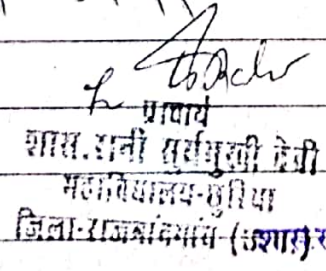 प्राचार्य
शास. रानी सुर्यमुखी देवी
महाविद्यालय-छुरिया
जिला-राजनांदगांव